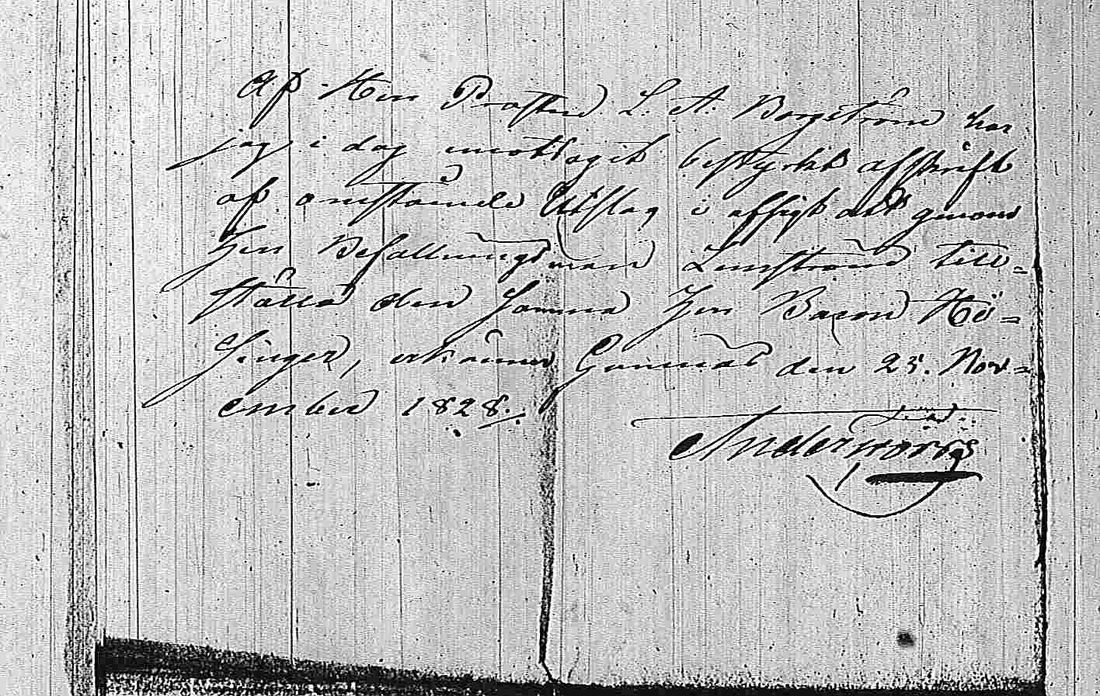 Af Herr Prosten L. A. Borgström har
jag i dag emottagit bestyrkt afskrift
af omstående Utslag i afsigt att genom
Herr Befallningsman Lunström till=
ställa den samma Herr Baron Hö=
Singer, erkänner Gumnäs den 25. Nov=
ember 1828.